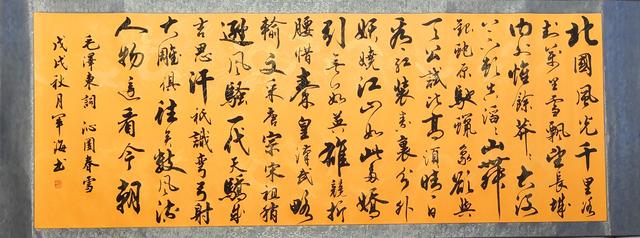 北國風光千里冰
封萬里雪飄望長城
內外惟餘莽莽大河
上下頓失滔滔山舞
銀蛇原馳蠟象欲與
天公試比高須晴日
看紅裝素裹分外
妖嬈江山如此多嬌
引無數英雄競折
腰惜秦皇漢武略
輸文采唐宗宋祖稍
遜風騷一代天驕成
吉思汗祇識彎弓射
大雕俱往矣數風流
人物還看今朝
毛澤東詞沁園春雪
戊戌秋月軍海書